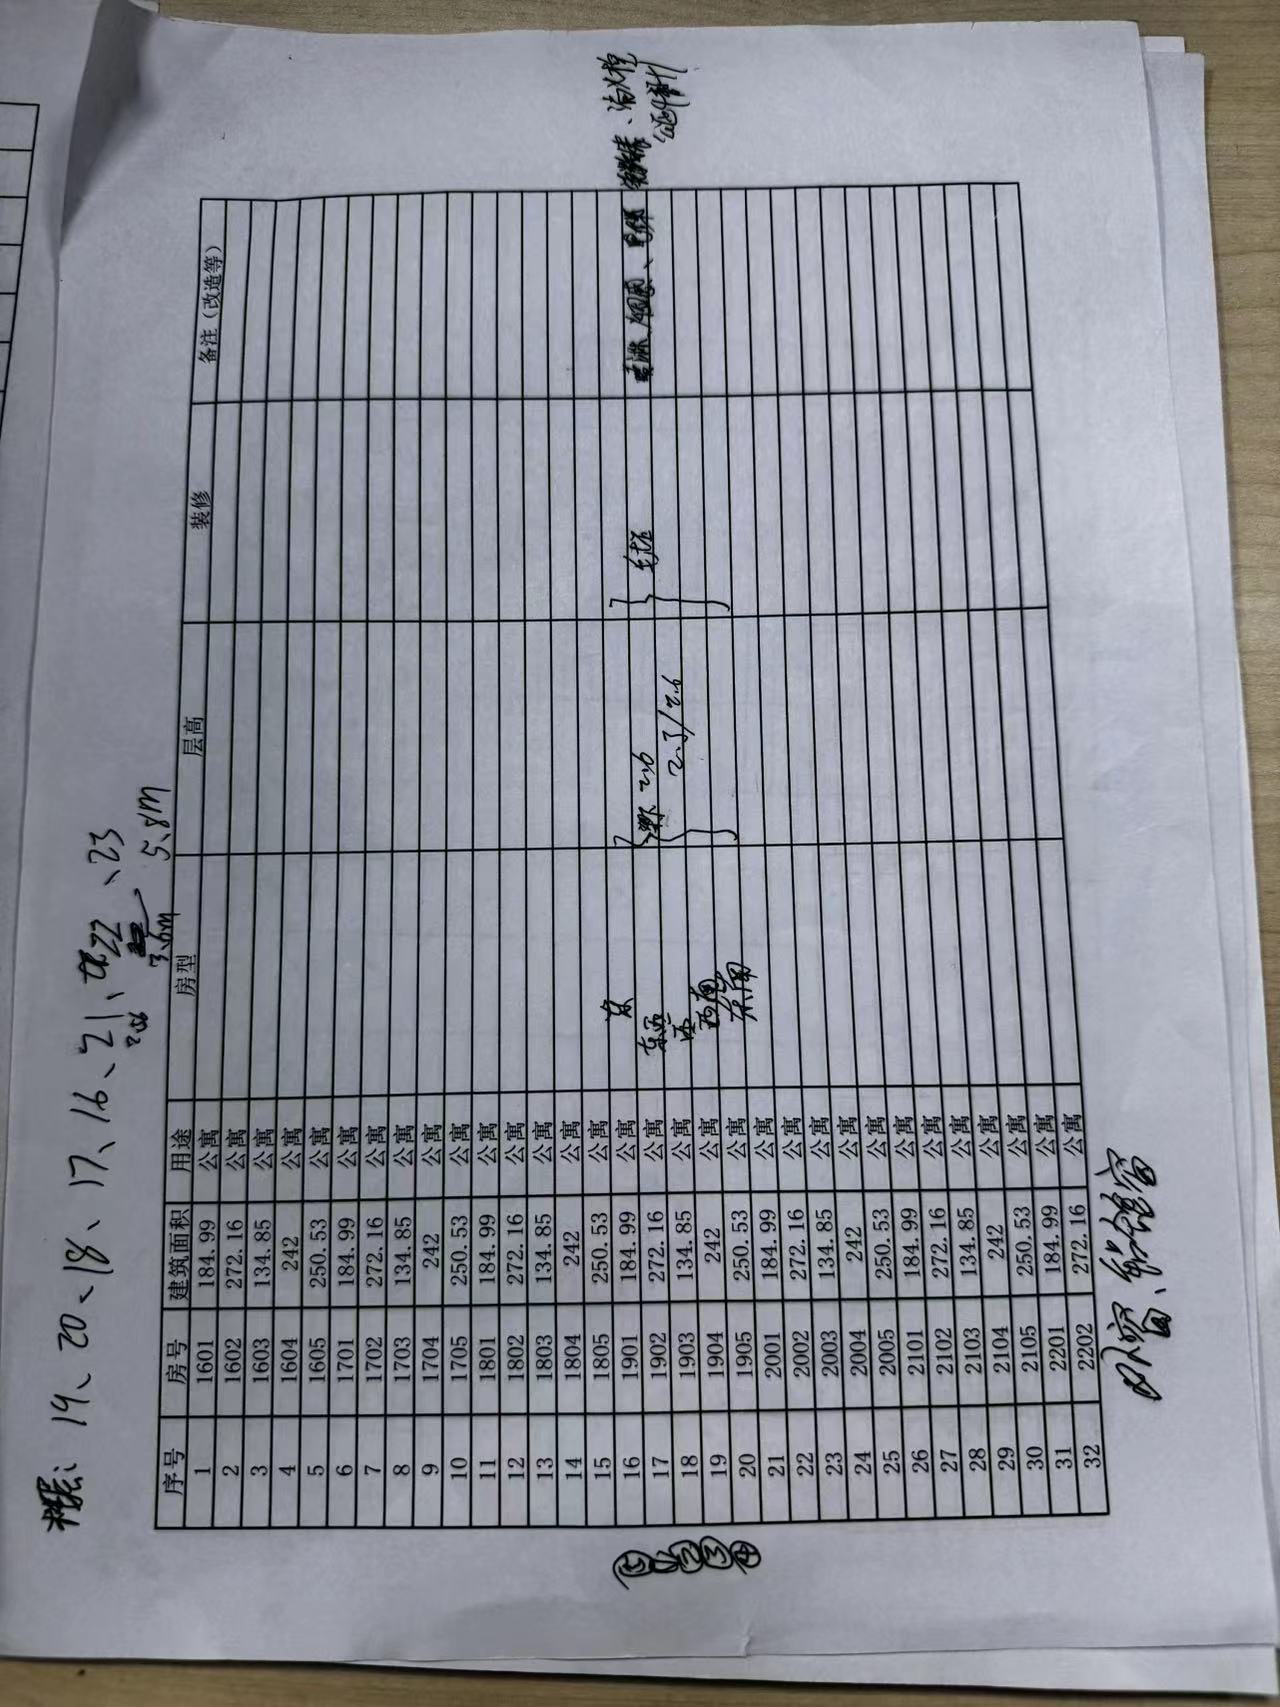 19、20、18、17、16、21、22、23
3.6m 5.8m
序号 房号 建筑面积 用途 房型 层高 装修 备注（改造等）
1 1601 184.99 公寓
2 1602 272.16 公寓
3 1603 134.85 公寓
4 1604 242 公寓
5 1605 250.53 公寓
6 1701 184.99 公寓
7 1702 272.16 公寓
8 1703 134.85 公寓
9 1704 242 公寓
10 1705 250.53 公寓
11 1801 184.99 公寓
12 1802 272.16 公寓
13 1803 134.85 公寓
14 1804 242 公寓
15 1805 250.53 公寓
⑤ 16 1901 184.99 公寓 东 2.6 毛坯 喷淋、烟感、
17 1902 272.16 公寓 2.3/2.6
② 18 1903 134.85 公寓 西
③ 19 1904 242 公寓 西南
④ 20 1905 250.53 公寓 东南
21 2001 184.99 公寓
22 2002 272.16 公寓
23 2003 134.85 公寓
24 2004 242 公寓
25 2005 250.53 公寓
26 2101 184.99 公寓
27 2102 272.16 公寓
28 2103 134.85 公寓
29 2104 242 公寓
30 2105 250.53 公寓
31 2201 184.99 公寓
32 2202 272.16 公寓